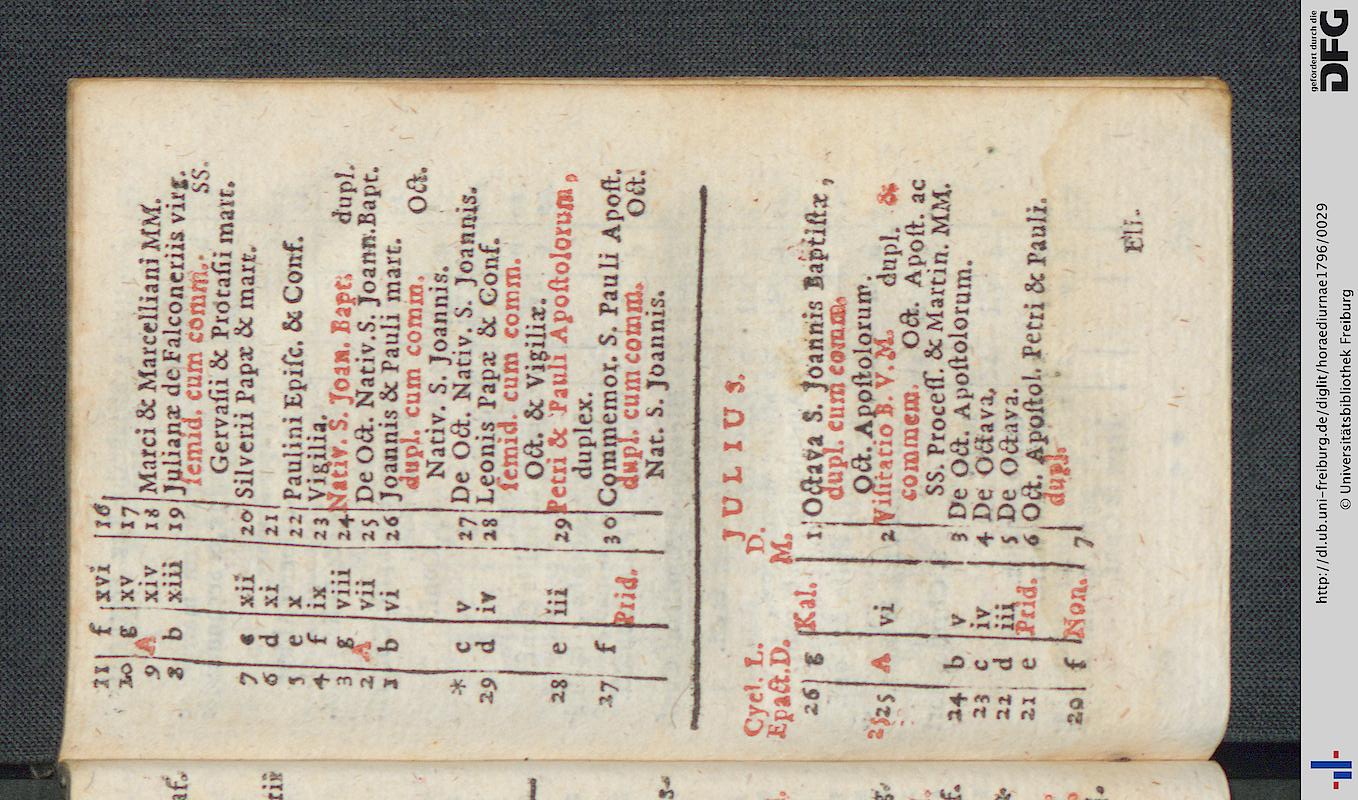 11 f xvi 16
10 g xv 17
9 A xiv 18 Marci & Marcelliani MM.
8 b xiii 19 Julianæ de Falconeriis virg.
ſemid. cum comm. SS.
Gervaſii & Protaſii mart.
7 c xii 20 Silverii Papæ & mart.
6 d xi 21
5 e x 22 Paulini Epiſc. & Conf.
4 f ix 23 Vigilia.
3 g viii 24 Nativ. S. Joan. Bapt. dupl.
2 A vii 25 De Oct. Nativ. S. Joann. Bapt.
1 b vi 26 Joannis & Pauli mart.
dupl. cum comm. Oct.
Nativ. S. Joannis.
* c v 27 De Oct. Nativ. S. Joannis.
29 d iv 28 Leonis Papæ & Conf.
ſemid. cum comm.
Oct. & Vigiliæ.
28 e iii 29 Petri & Pauli Apoſtolorum,
duplex.
27 f Prid. 30 Commemor. S. Pauli Apoſt.
dupl. cum comm. Oct.
Nat. S. Joannis.
JULIUS.
Cycl. L. D.
Epact. D. M.
26 g Kal. 1 Octava S. Joannis Baptiſtæ,
dupl. cum comm.
Oct. Apoſtolorum.
25 25 A vi 2 Viſitatio B. V. M. dupl. &
commem. Oct. Apoſt. ac
SS. Proceſſ. & Martin. MM.
24 b v 3 De Oct. Apoſtolorum.
23 c iv 4 De Octava.
22 d iii 5 De Octava.
21 e Prid. 6 Oct. Apoſtol. Petri & Pauli.
dupl.
20 f Non. 7
Eli.
http://dl.ub.uni-freiburg.de/diglit/horaediurnae1796/0029
© Universitätsbibliothek Freiburg
gefördert durch die
DFG